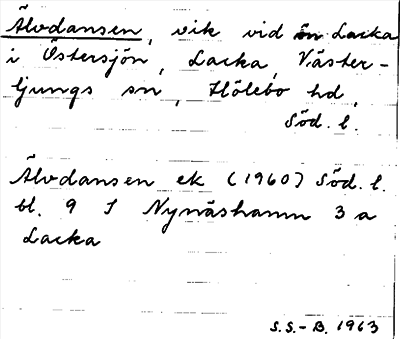 Älvdansen, vik vid ön Lacka
i Östersjön, Lacka, Väster-
ljungs sn, Hölebo hd,
Söd. l.
Älvdansen ek (1960) Söd. l.
bl. 9 I Nynäshamn 3 a
Lacka
S.S.-B. 1963